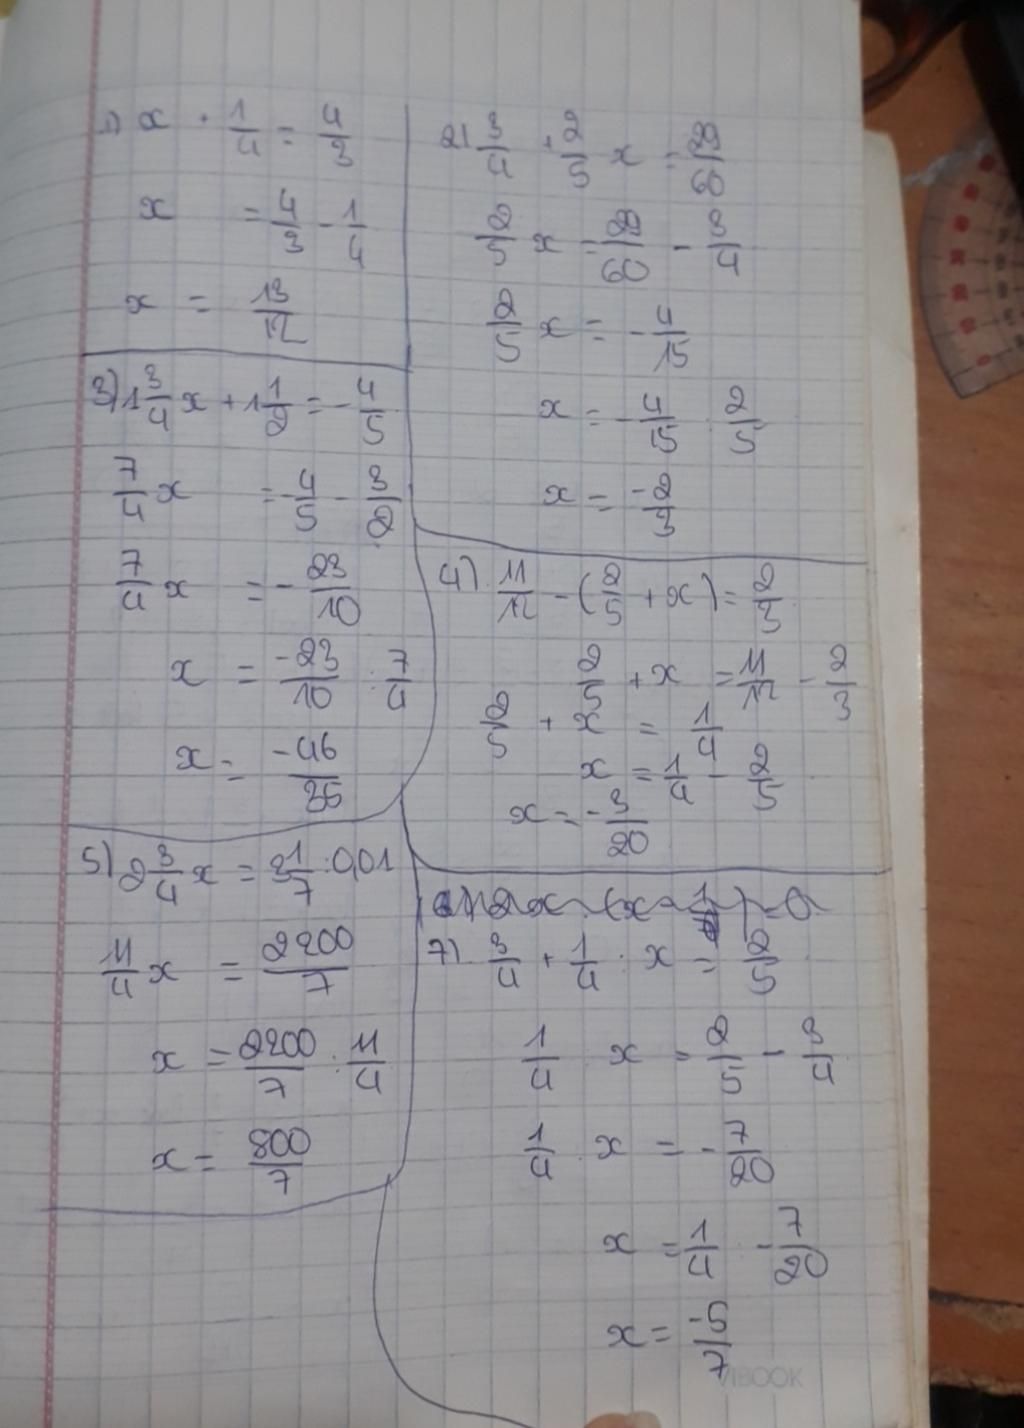 1) x + 1/4 = 4/3
x = 4/3 - 1/4
x = 13/12
2) 3/4 + 2/5 x = 29/60
2/5 x = 29/60 - 3/4
2/5 x = - 4/15
x = - 4/15 : 2/5
x = -2/3
3) 1 3/4 x + 1 1/2 = - 4/5
7/4 x = - 4/5 - 3/2
7/4 x = - 23/10
x = -23/10 : 7/4
x = -46/35
4) 11/12 - (2/5 + x) = 2/3
2/5 + x = 11/12 - 2/3
2/5 + x = 1/4
x = 1/4 - 2/5
x = - 3/20
5) 2 3/4 x = 3 1/7 : 0,01
11/4 x = 2200/7
x = 2200/7 : 11/4
x = 800/7
7) 3/4 + 1/4 : x = 2/5
1/4 : x = 2/5 - 3/4
1/4 : x = - 7/20
x = 1/4 : - 7/20
x = -5/7